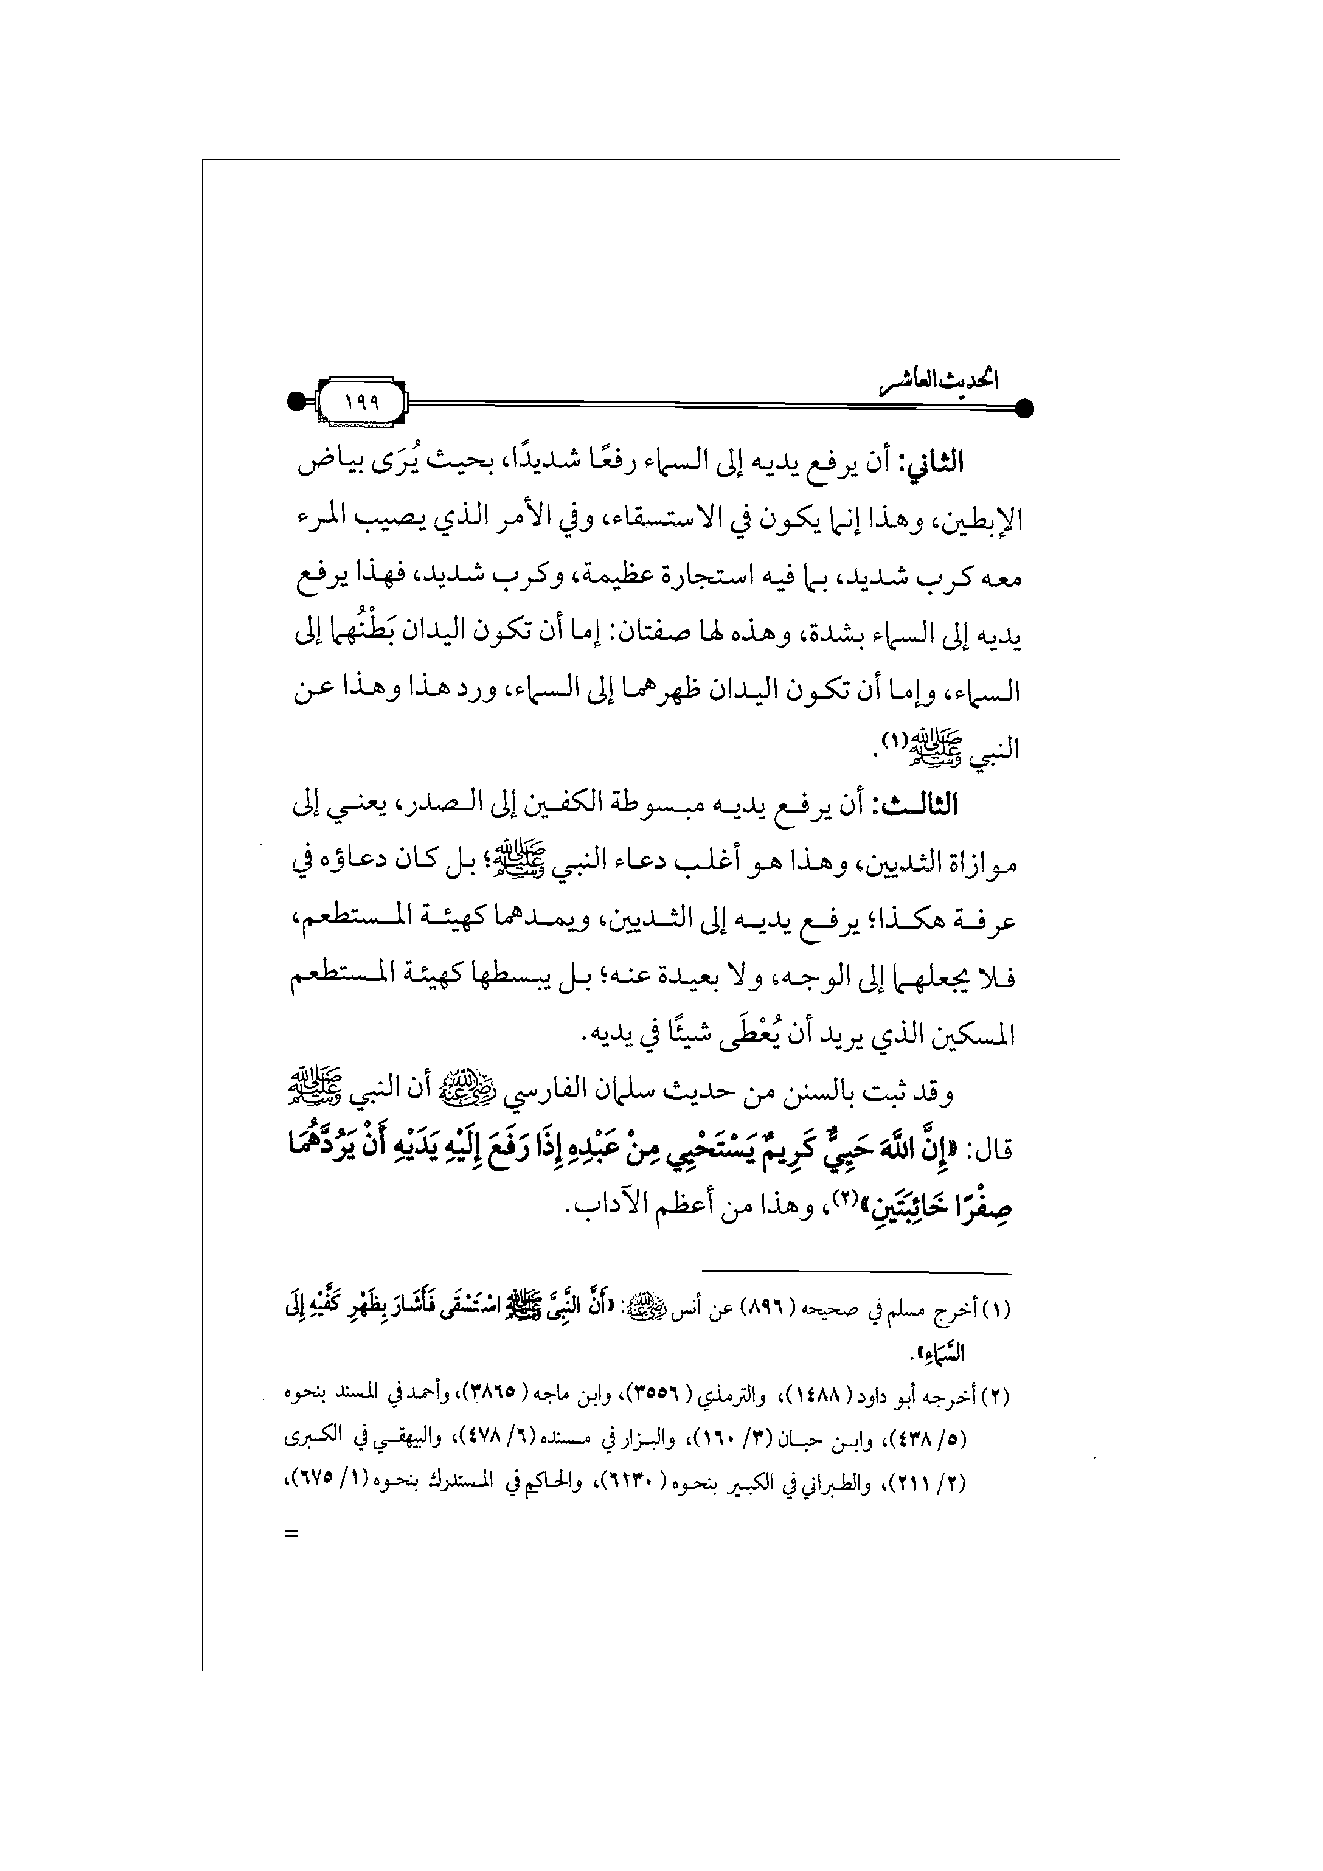 الحديث العاشر
١٩٩
الثاني: أن يرفع يديه إلى السماء رفعًا شديدًا، بحيث يُرَى بياض
الإبطين، وهذا إنما يكون في الاستسقاء، وفي الأمر الذي يصيب المرء
معه كرب شديد، بما فيه استجارة عظيمة، وكرب شديد، فهذا يرفع
يديه إلى السماء بشدة، وهذه لها صفتان: إما أن تكون اليدان بَطْنُهما إلى
السماء، وإما أن تكون اليدان ظهرهما إلى السماء، ورد هذا وهذا عن
النبي ﷺ(١).
الثالث: أن يرفع يديه مبسوطة الكفين إلى الصدر، يعني إلى
موازاة الثديين، وهذا هو أغلب دعاء النبي ﷺ؛ بل كان دعاؤه في
عرفة هكذا؛ يرفع يديه إلى الثديين، ويمدهما كهيئة المستطعم،
فلا يجعلهما إلى الوجه، ولا بعيدة عنه؛ بل يبسطها كهيئة المستطعم
المسكين الذي يريد أن يُعْطَى شيئًا في يديه.
وقد ثبت بالسنن من حديث سلمان الفارسي رضي الله عنه أن النبي ﷺ
قال: «إِنَّ اللهَ حَيِيٌّ كَرِيمٌ يَسْتَحْيِي مِنْ عَبْدِهِ إِذَا رَفَعَ إِلَيْهِ يَدَيْهِ أَنْ يَرُدَّهُمَا
صِفْرًا خَائِبَتَينِ»(٢)، وهذا من أعظم الآداب.
(١) أخرج مسلم في صحيحه (٨٩٦) عن أنس رضي الله عنه: «أَنَّ النَّبِيَّ ﷺ اسْتَسْقَى فَأَشَارَ بِظَهْرِ كَفَّيْهِ إِلَى
السَّمَاءِ».
(٢) أخرجه أبو داود (١٤٨٨)، والترمذي (٣٥٥٦)، وابن ماجه (٣٨٦٥)، وأحمد في المسند بنحوه
(٥/ ٤٣٨)، وابن حبان (٣/ ١٦٠)، والبزار في مسنده (٦/ ٤٧٨)، والبيهقي في الكبرى
(٢/ ٢١١)، والطبراني في الكبير بنحوه (٦١٣٠)، والحاكم في المستدرك بنحوه (١/ ٦٧٥)،
=